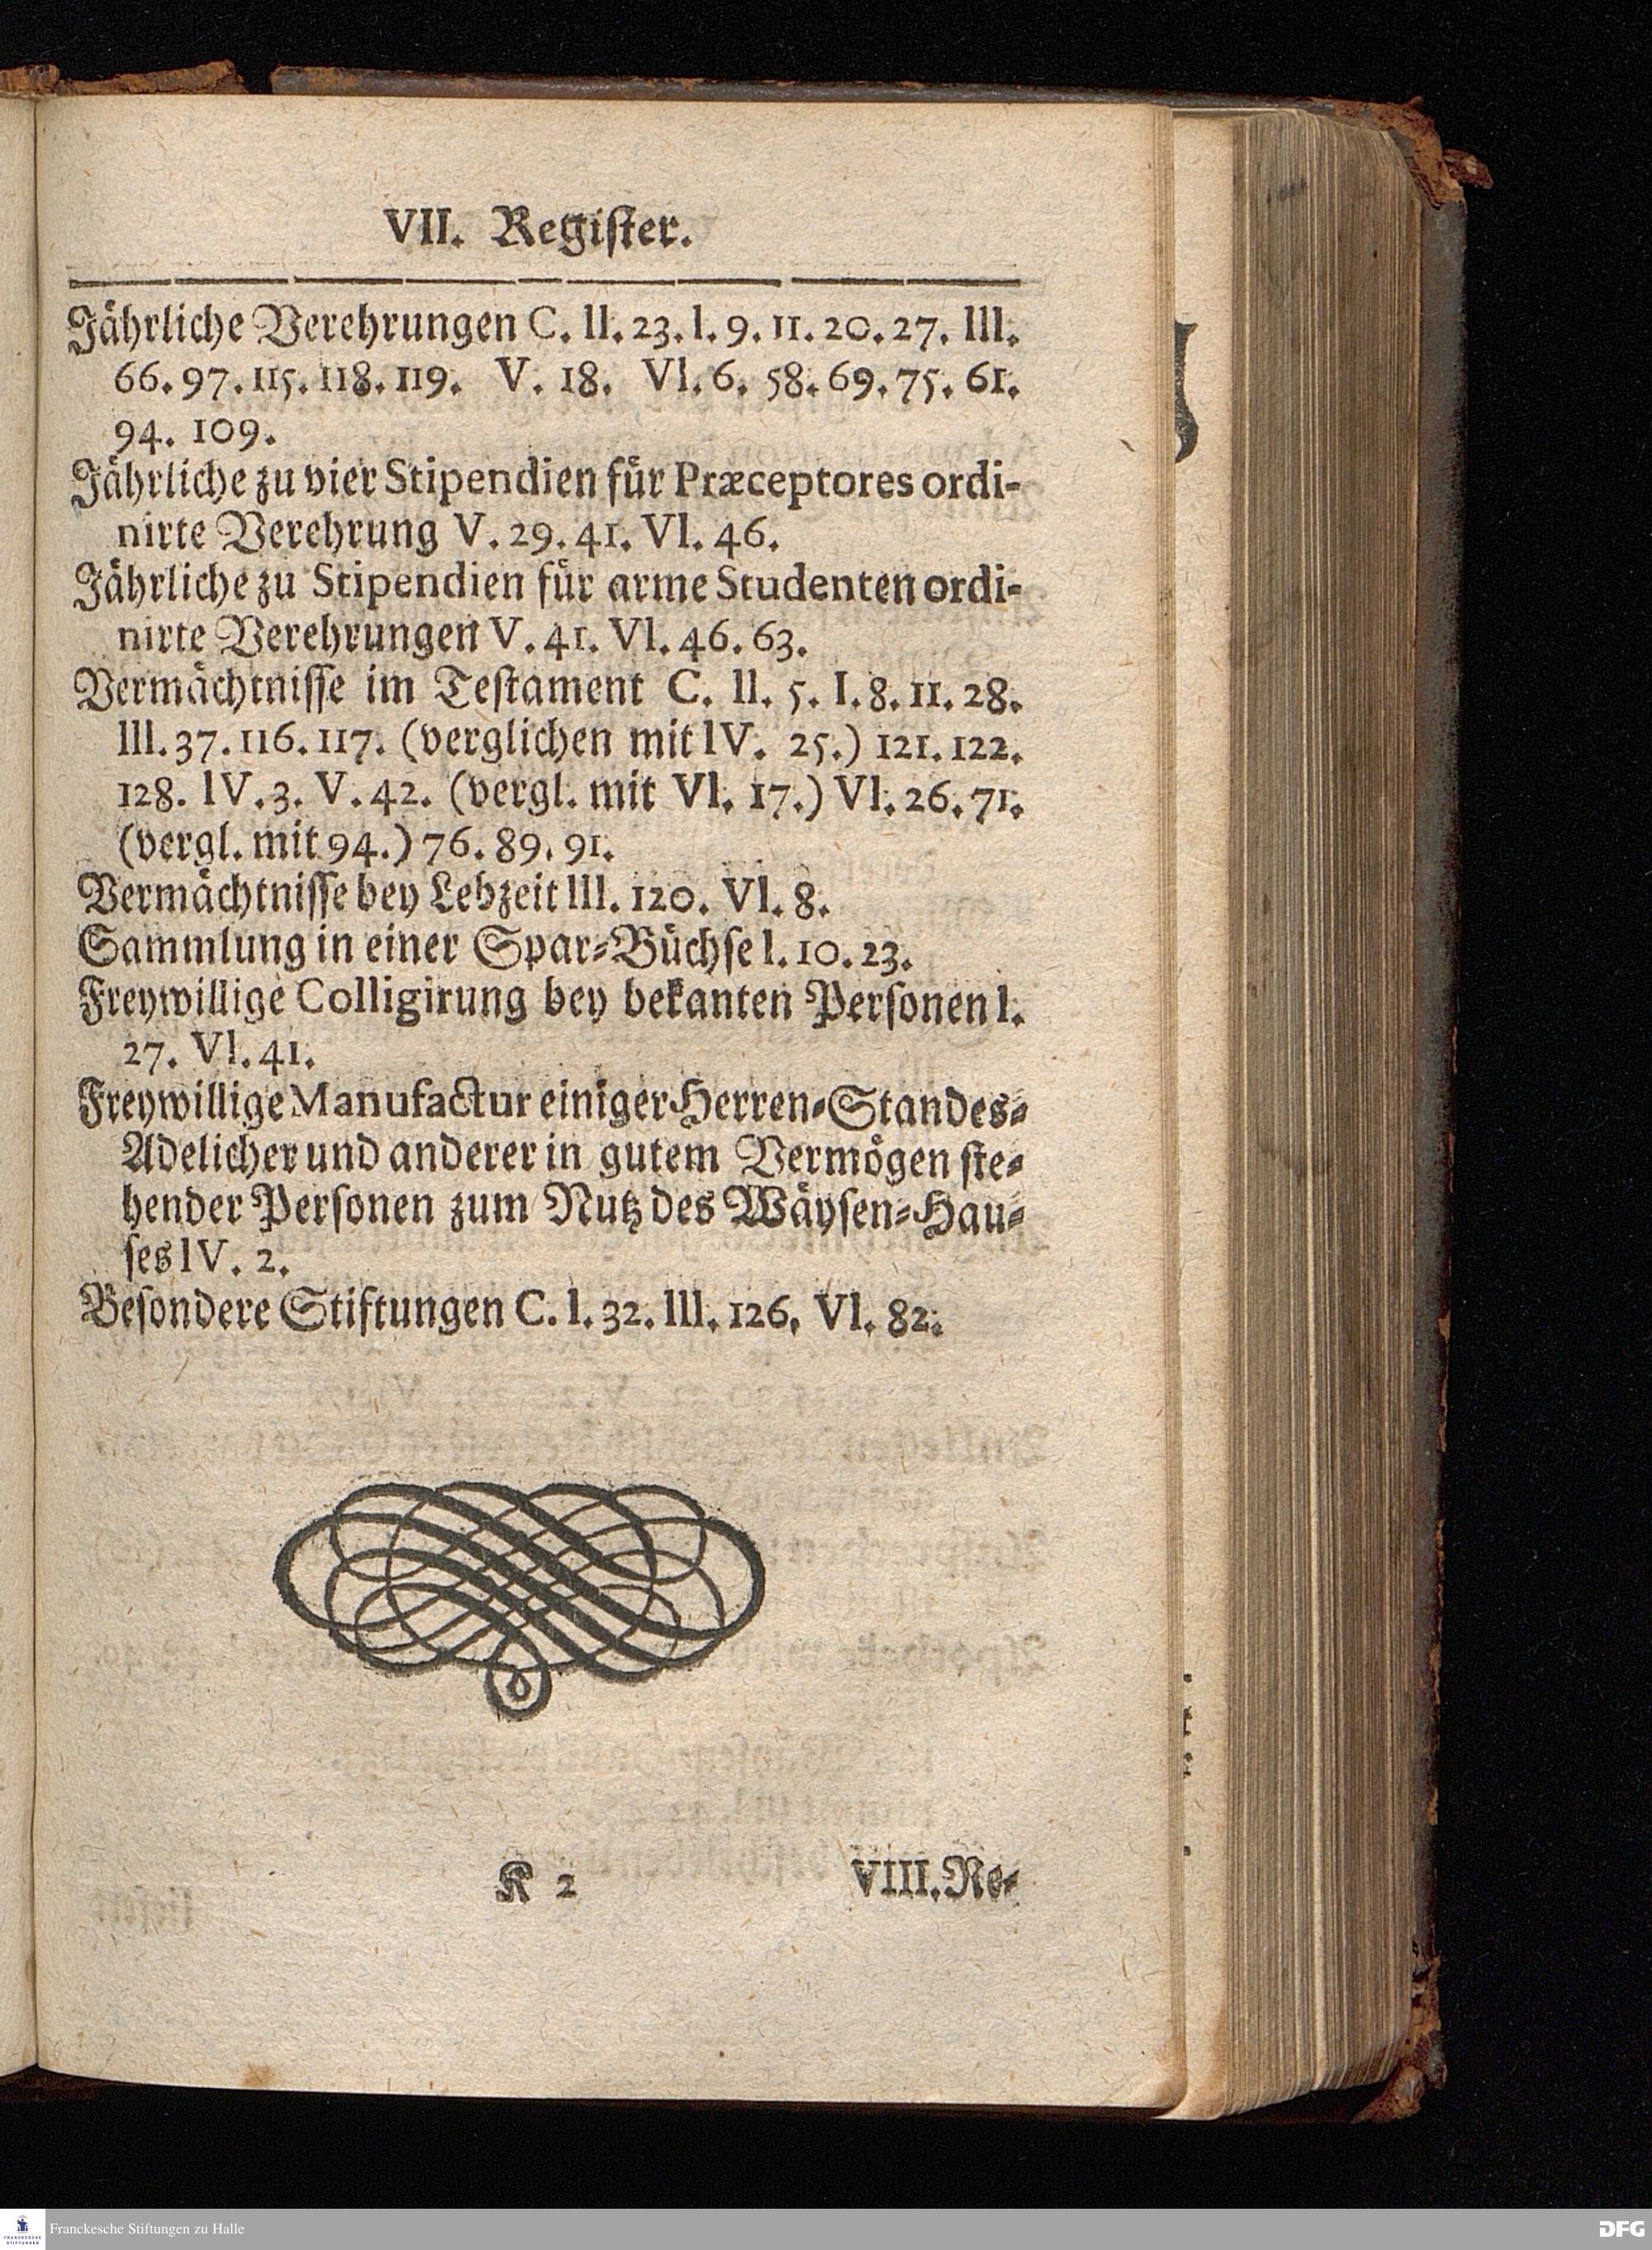 VII. Regiſter.
Jährliche Verehrungen C. ll. 23. l. 9. 11. 20. 27. lll.
66. 97. 115. 118. 119. V. 18. Vl. 6. 58. 69. 75. 61.
94. 109.
Jährliche zu vier Stipendien für Præceptores ordi-
nirte Verehrung V. 29. 41. Vl. 46.
Jährliche zu Stipendien für arme Studenten ordi-
nirte Verehrungen V. 41. Vl. 46. 63.
Vermächtniſſe im Teſtament C. ll. 5. I. 8. 11. 28.
lll. 37. 116. 117. (verglichen mit lV. 25.) 121. 122.
128. lV. 3. V. 42. (vergl. mit Vl. 17.) Vl. 26. 71.
(vergl. mit 94.) 76. 89. 91.
Vermächtniſſe bey Lebzeit lll. 120. Vl. 8.
Sammlung in einer Spar-Büchſe l. 10. 23.
Freywillige Colligirung bey bekanten Perſonen l.
27. Vl. 41.
Freywillige Manufactur einiger Herren-Standes-
Adelicher und anderer in gutem Vermögen ſte-
hender Perſonen zum Nutz des Wäyſen-Hau-
ſes lV. 2.
Beſondere Stiftungen C. l. 32. lll. 126. Vl. 82.
K 2 VIII. Re-
FRANCKESCHE STIFTUNGEN
Franckesche Stiftungen zu Halle
DFG